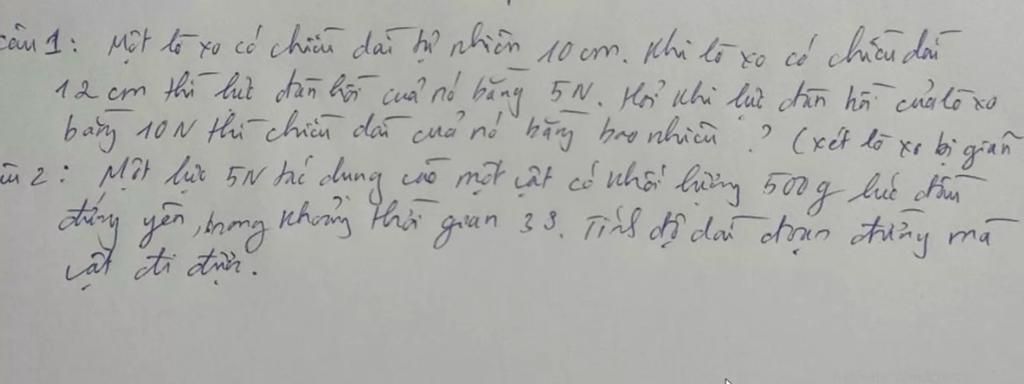 Câu 1: Một lò xo có chiều dài tự nhiên 10 cm. Khi lò xo có chiều dài
12 cm thì lực đàn hồi của nó bằng 5N. Hỏi khi lực đàn hồi của lò xo
bằng 10N thì chiều dài của nó bằng bao nhiêu? (xét lò xo bị giãn
âu 2: Một lực 5N tác dụng vào một vật có khối lượng 500g lúc đầu
đứng yên, trong khoảng thời gian 3s. Tính độ dài đoạn đường mà
vật đi được.